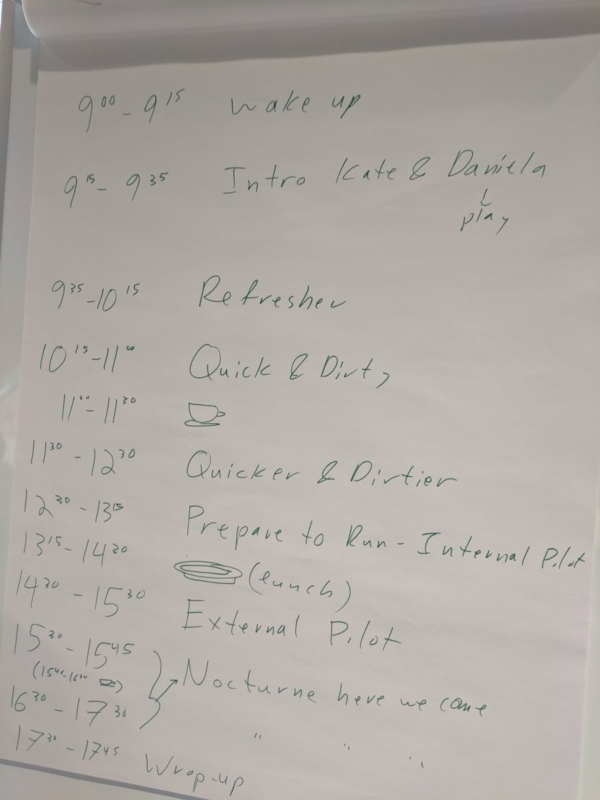 9⁰⁰ - 9¹⁵ wake up
9¹⁵ - 9³⁵ Intro Kate & Daniela
play
9³⁵ - 10¹⁵ Refresher
10¹⁵ - 11⁰⁰ Quick & Dirty
11⁰⁰ - 11³⁰
11³⁰ - 12³⁰ Quicker & Dirtier
12³⁰ - 13¹⁵ Prepare to Run - Internal Pilot
13¹⁵ - 14³⁰ (lunch)
14³⁰ - 15³⁰ External Pilot
15³⁰ - 15⁴⁵
(15⁴⁵-16⁰⁰) Nocturne here we come
16³⁰ - 17³⁰ " " "
17³⁰ - 17⁴⁵ Wrap-up